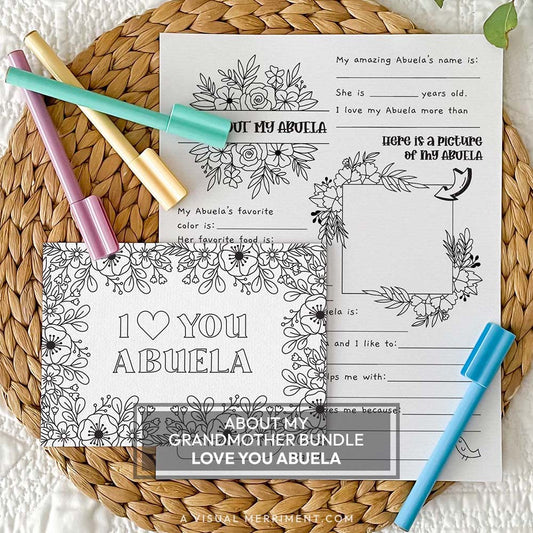 My amazing Abuela's name is:
She is ________ years old.
I love my Abuela more than
OUT MY ABUELA
HERE IS A PICTURE
OF MY ABUELA
My Abuela's favorite
color is:
Her favorite food is:
I ♡ YOU
ABUELA
is:
and I like to:
me with:
me because:
ABOUT MY
GRANDMOTHER BUNDLE
LOVE YOU ABUELA
A VISUAL MERRIMENT.COM